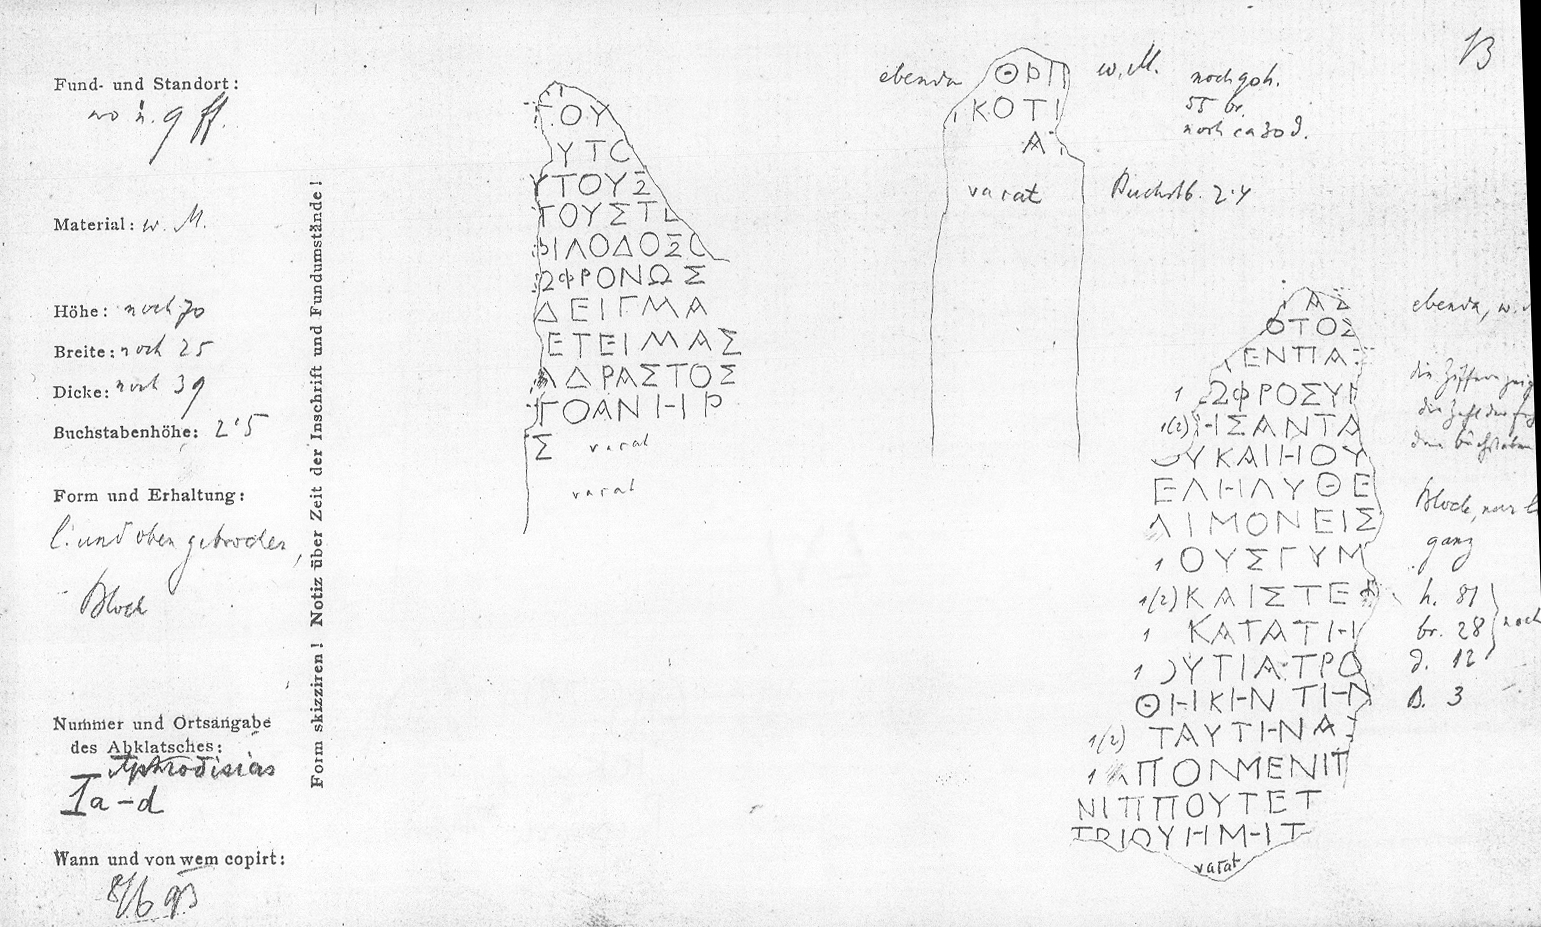 13
Fund- und Standort:
wo n. 9 ff.
Material: w. M.
Höhe: noch 70
Breite: noch 25
Dicke: noch 39
Buchstabenhöhe: 2·5
Form und Erhaltung:
l. und oben gebrochen,
Block
Nummer und Ortsangabe
des Abklatsches:
Aphrodisias
Ia-d
Wann und von wem copirt:
8/6 93
Form skizziren! Notiz über Zeit der Inschrift und Fundumstände!
ΤΟΥ
ΥΤΟ
ΥΤΟΥΣ
ΤΟΥΣΤ
ΦΙΛΟΔΟΞΟ
ΩΦΡΟΝΩΣ
ΔΕΙΓΜΑ
ΕΤΕΙΜΑΣ
ΑΔΡΑΣΤΟΣ
ΓΟΑΝΗΡ
Σ vacat
vacat
ebenda
ΘΡΠ
ΚΟΤΙ
Α
vacat
w. M.
noch 90 h.
55 br.
noch ca 30 d.
Buchstb. 2·4
ΑΣ
ΟΤΟΣ
ΕΝΠΑΣ
1 ΩΦΡΟΣΥΝ
1(2) ΗΣΑΝΤΑ
ΟΥΚΑΙΗΟΥ
ΕΛΗΛΥΘΕ
ΛΙΜΟΝΕΙΣ
1 ΟΥΣΓΥΜ
1(2) ΚΑΙΣΤΕΦ
1 ΚΑΤΑΤΗ
1 ΟΥΤΙΑΤΡΟ
ΘΗΚΗΝΤΗΝ
1(2) ΤΑΥΤΗΝΑ
1 ΛΠΟΝΜΕΝΙΠ
ΝΙΠΠΟΥΤΕΤ
ΤΡΙΟΥΗΜΗΤ
vacat
ebenda, w.
die Ziffern zeig
die Zahl der
den Buchstaben
Block, nur l.
ganz
h. 81
br. 28 noch
d. 12
B. 3